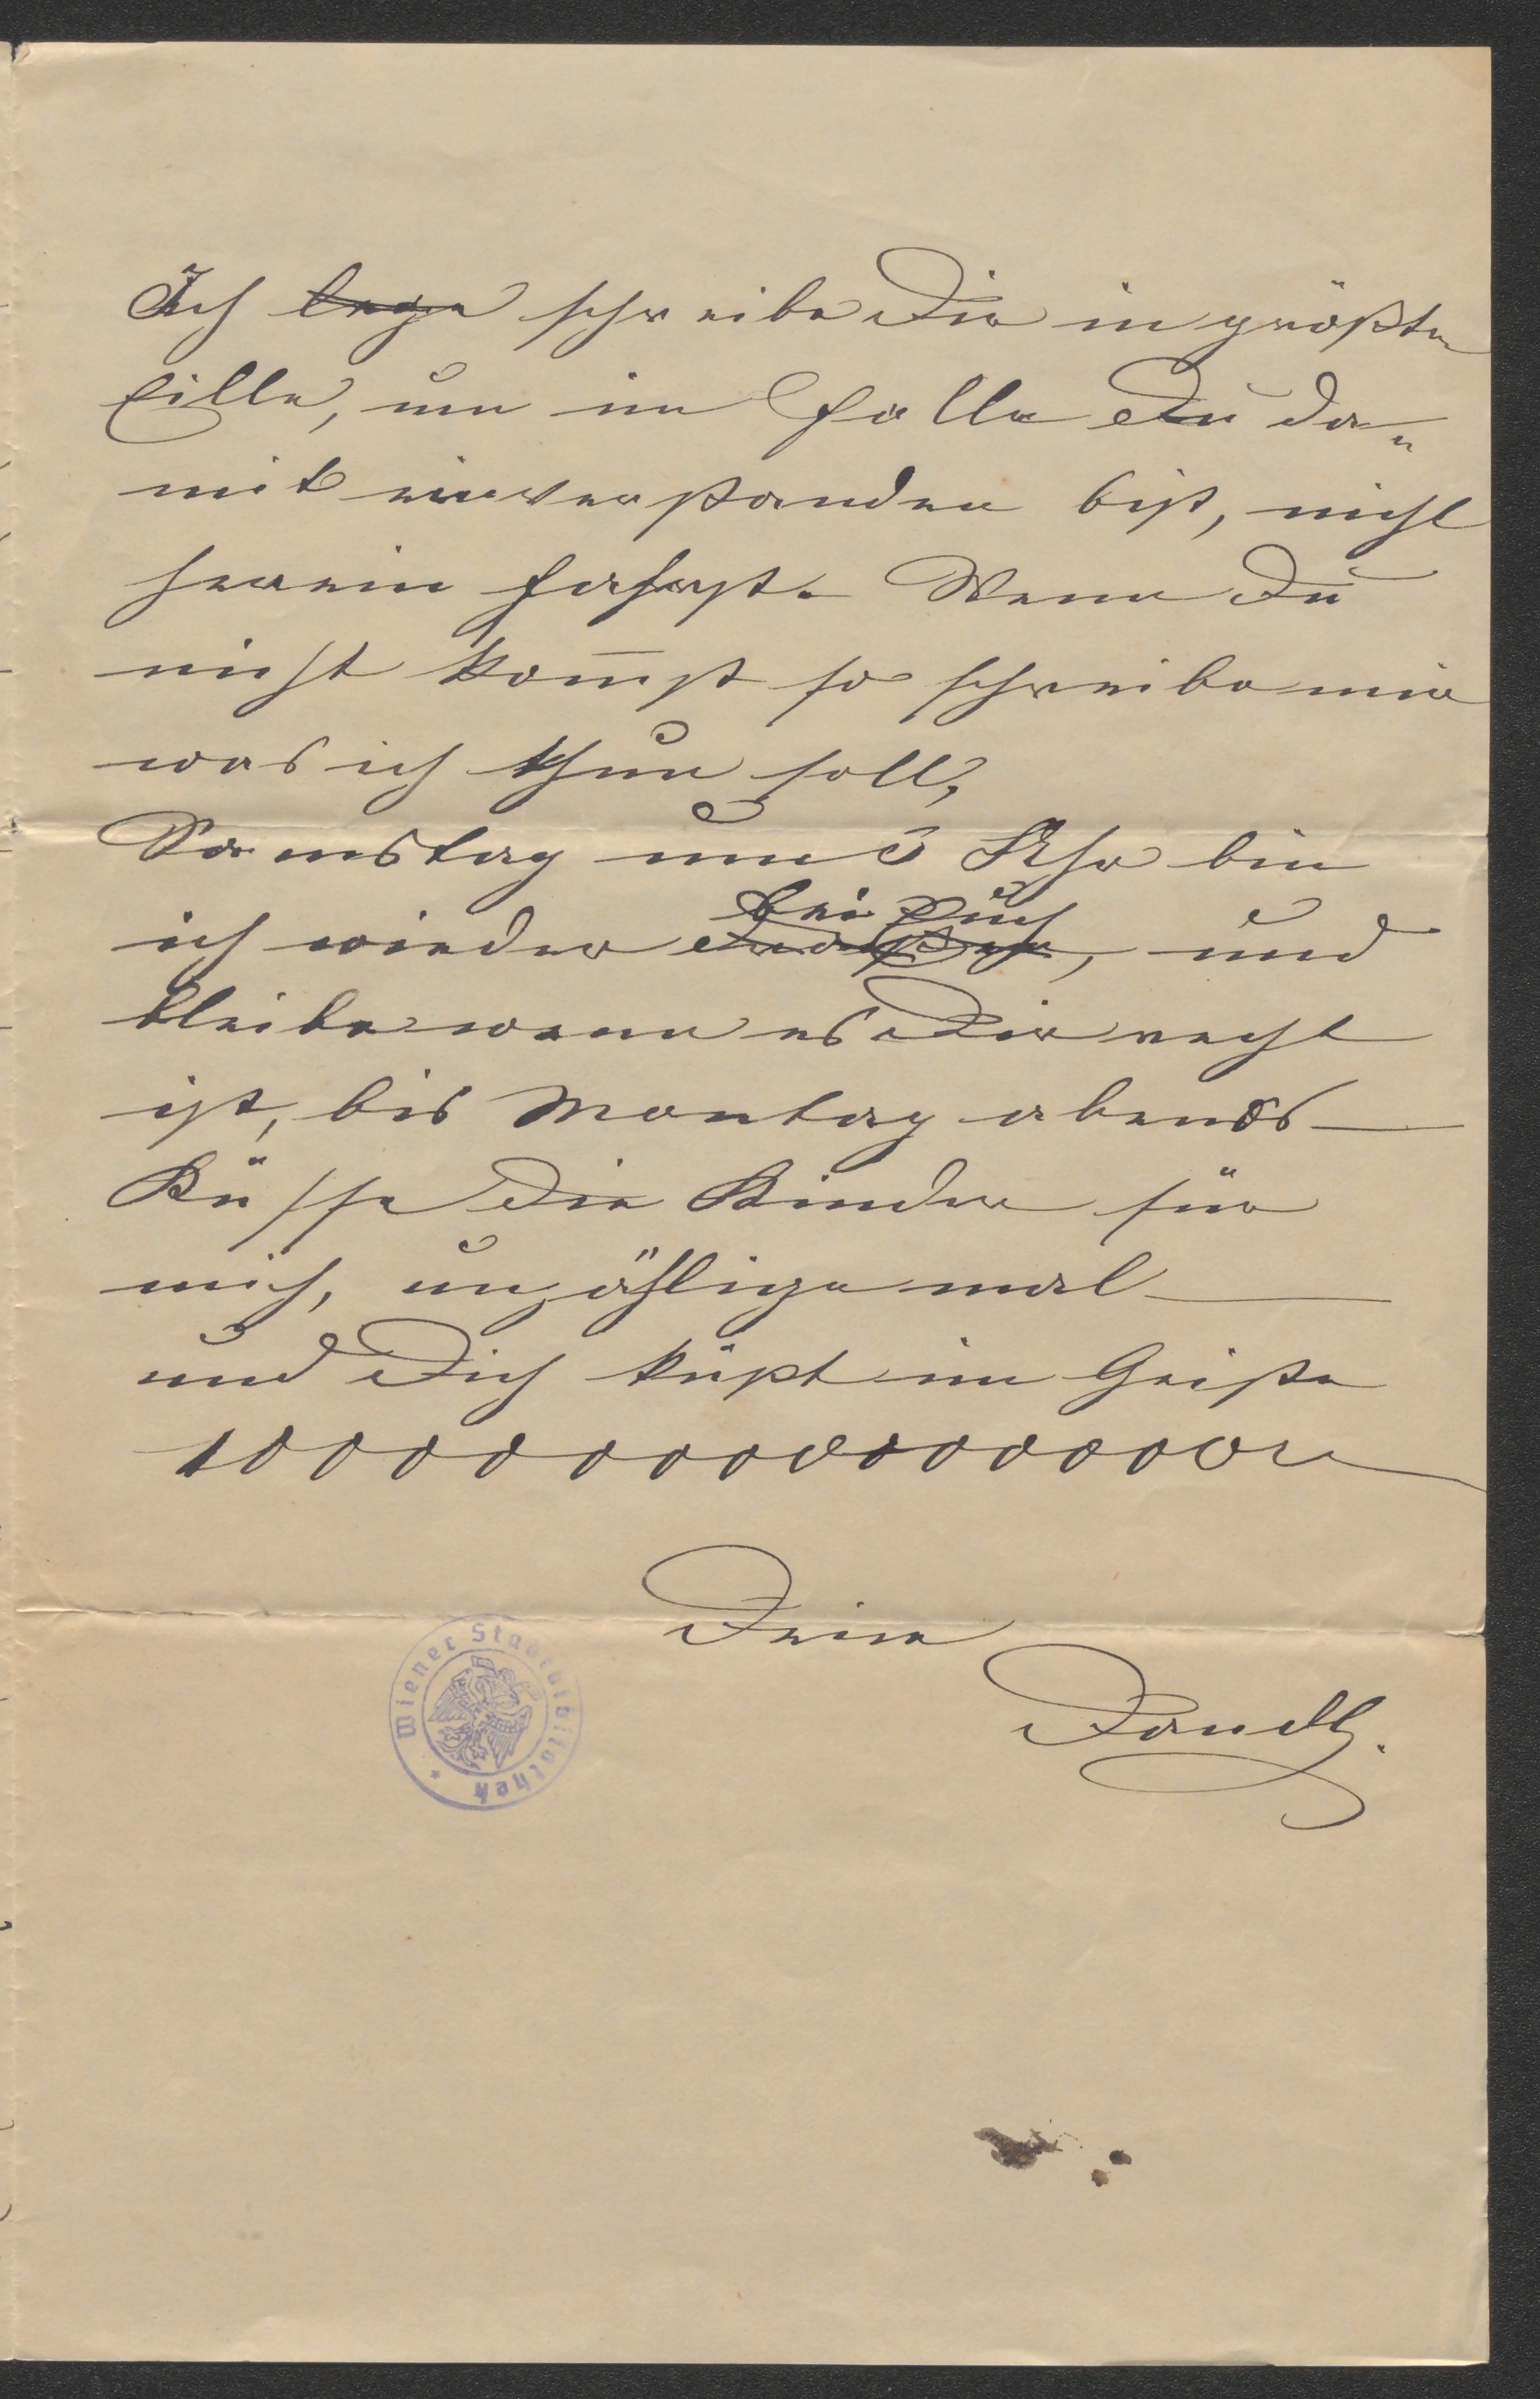 Ich lege schreibe Dir in größter
Eille, um im Falle Du da„
mit einverstanden bist, nicht
herein fahrst. Wenn Du
nicht kom̅st so schreibe mir
was ich thun soll,
Samstag um 3 Uhr bin
bei Euch
ich wieder, und
bleibe wenn es Dir recht
ist, bis Montag abends —
Küsse die Kinder für
mich, unzählige mal —
und Dich küßt im Geiste
Dein
Wiener Stadtbibliothek